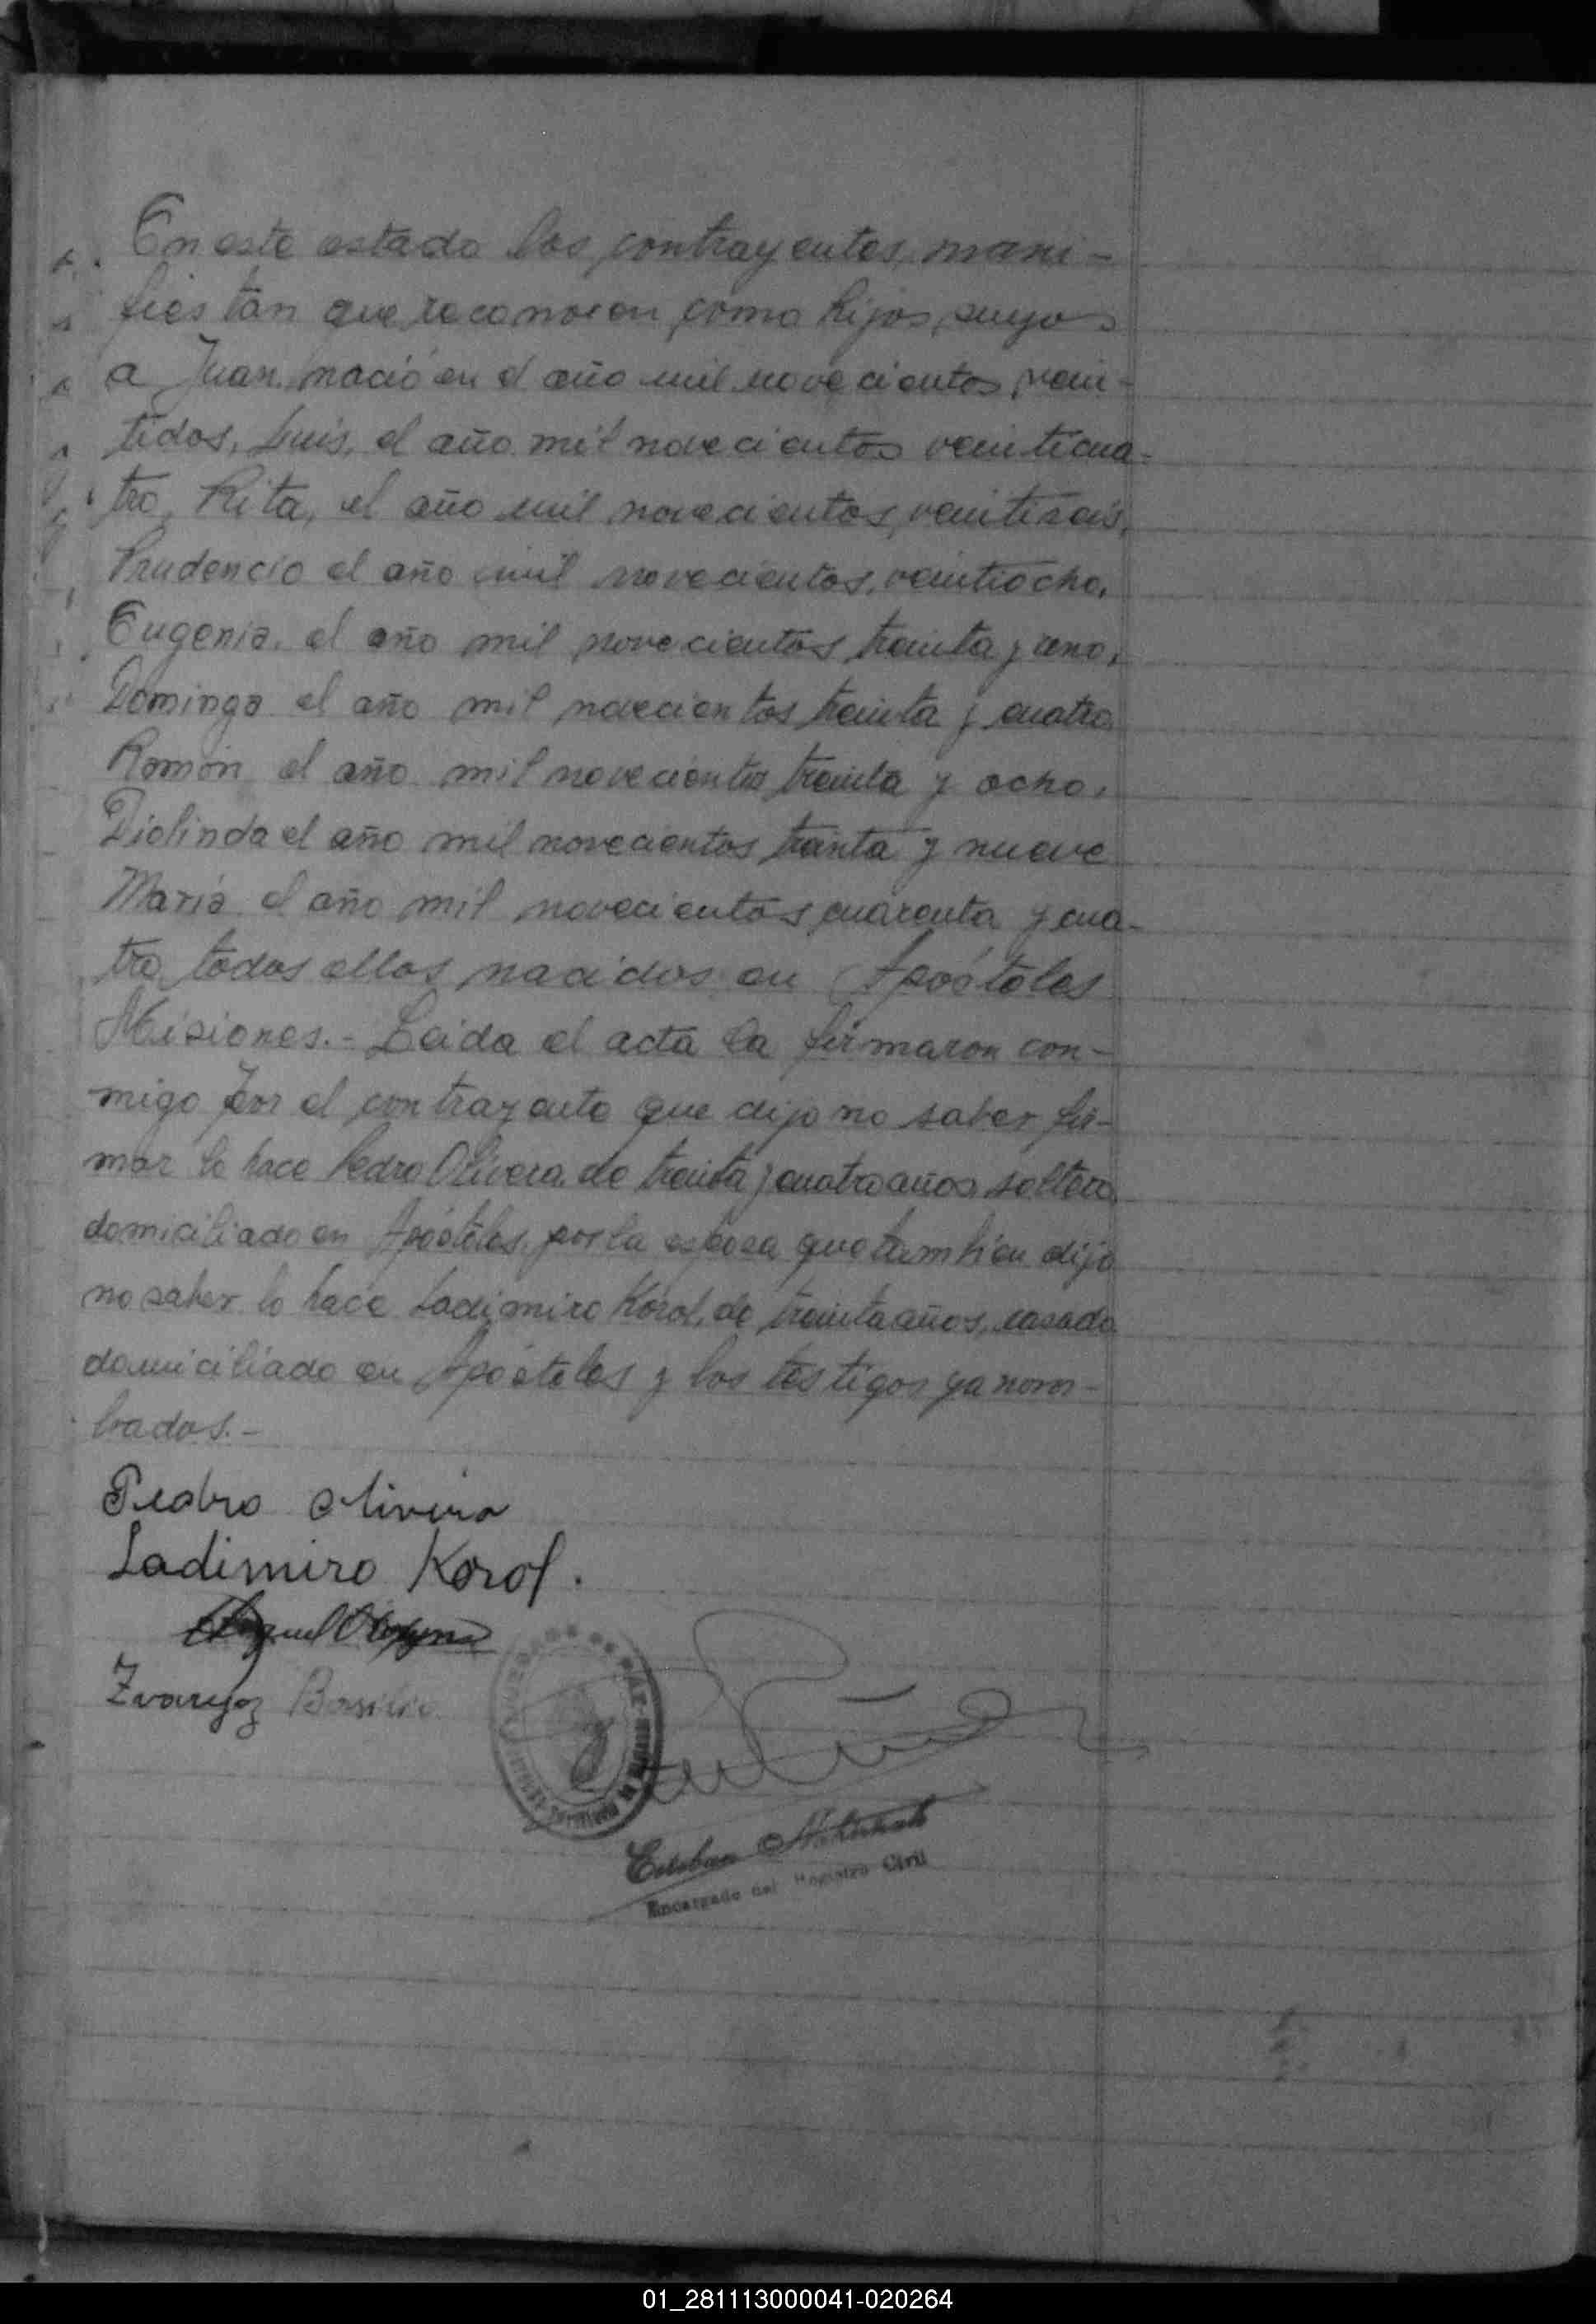 En este estado los contrayentes, mani-
fiestan que reconocen como hijos suyos
a Juan, nació en el año mil novecientos vein-
tidos, Luis, el año mil novecientos veinticua-
tro, Rita, el año mil novecientos veintiseis,
Prudencio el año mil novecientos, veintiocho,
Eugenia, el año mil novecientos treinta y uno,
Domingo el año mil novecientos treinta y cuatro
Ramón el año mil novecientos treinta y ocho,
Diolinda el año mil novecientos treinta y nueve
María el año mil novecientos cuarenta y cua-
tro todos ellos nacidos en Apóstoles
Misiones.- Leida el acta la firmaron con-
migo por el contrayente que dijo no saber fir-
mar lo hace Pedro Olivera de treinta y cuatro años, soltero
domiciliado en Apóstoles, por la esposa que tambien dijo
no saber lo hace Ladimiro Korol, de treinta años, casado
domiciliado en Apóstoles y los testigos ya nom-
bados.-
Pedro Olivera
Ladimiro Korol.
Zvarycz Basilio
Esteban
Encargado del Registro Civil
01_281113000041-020264